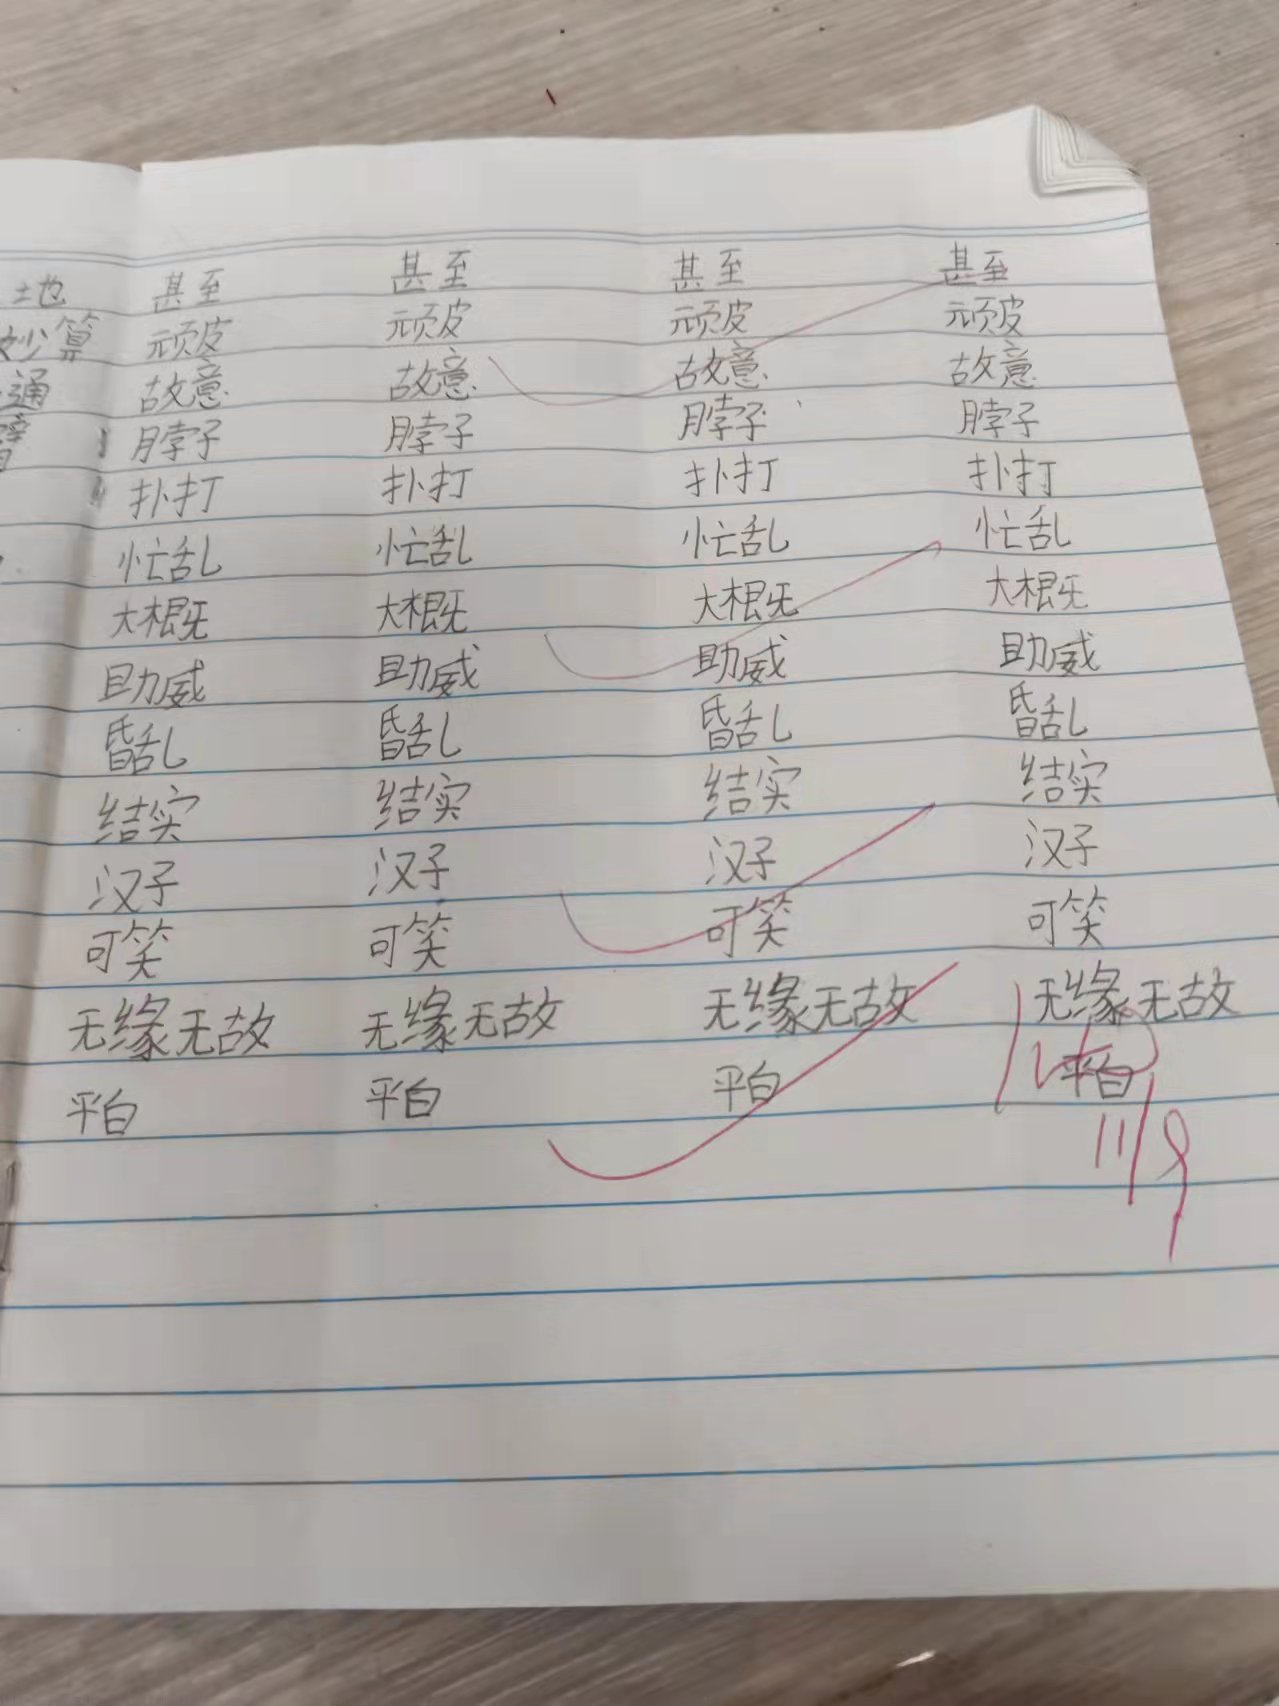 土地 甚至 甚至 甚至 甚至
妙算 顽皮 顽皮 顽皮 顽皮
通 故意 故意 故意 故意
脖子 脖子 脖子 脖子
扑打 扑打 扑打 扑打
忙乱 忙乱 忙乱 忙乱
大概 大概 大概 大概
助威 助威 助威 助威
昏乱 昏乱 昏乱 昏乱
结实 结实 结实 结实
汉子 汉子 汉子 汉子
可笑 可笑 可笑 可笑
无缘无故 无缘无故 无缘无故 无缘无故
平白 平白 平白 平白
11/9